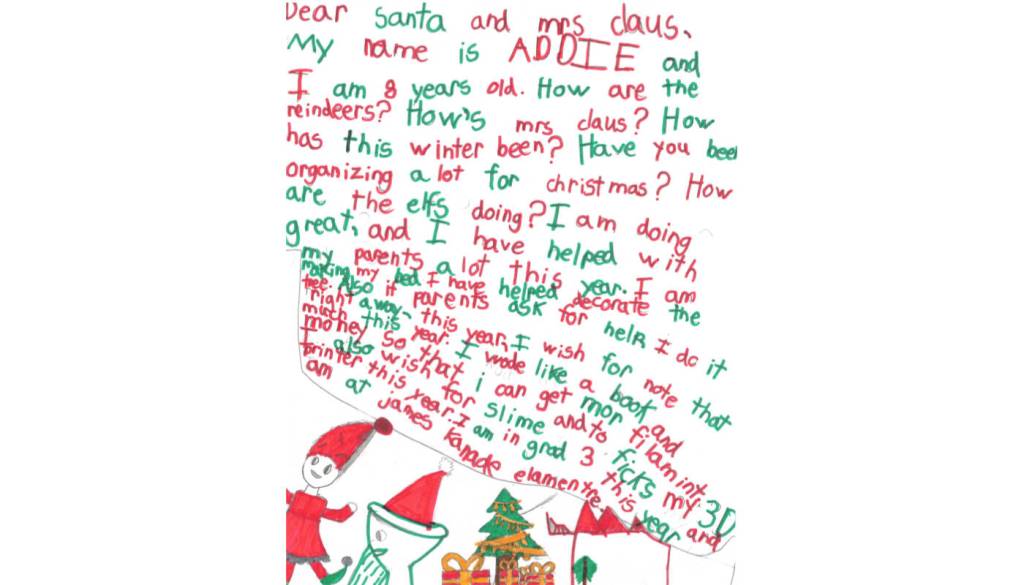 Dear Santa and mrs claus.
My name is ADDIE and
I am 8 years old. How are the
reindeers? How's mrs claus? How
has this winter been? Have you been
organizing a lot for christmas? How
are the elfs doing? I am doing
great, and I have helped with
my parents a lot this year. I am
making my bed I have helped decorate the
tree. Also if parents ask for help I do it
right away. this year, I wish for note that
much this year. I wode like a book and
money so that i can get mor filamint
I also wish for slime and to ficks my 3D
printer this year. I am in grad 3 this year and
am at james kanade elamentre